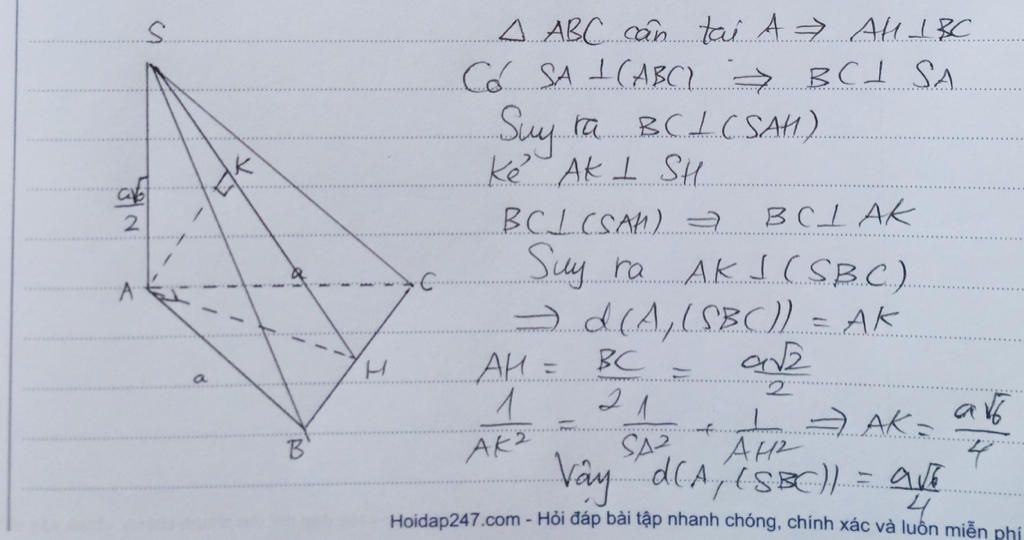 S
K
a√6/2
A
a
C
a
H
B
Δ ABC cân tai A ⇒ AH ⊥ BC
Có SA ⊥ (ABC) ⇒ BC ⊥ SA
Suy ra BC ⊥ (SAH)
Kẻ AK ⊥ SH
BC ⊥ (SAH) ⇒ BC ⊥ AK
Suy ra AK ⊥ (SBC)
⇒ d(A, (SBC)) = AK
AH = BC/2 = a√2/2
1/AK² = 1/SA² + 1/AH² ⇒ AK = a√6/4
Vậy d(A, (SBC)) = a√6/4
Hoidap247.com - Hỏi đáp bài tập nhanh chóng, chính xác và luôn miễn phí